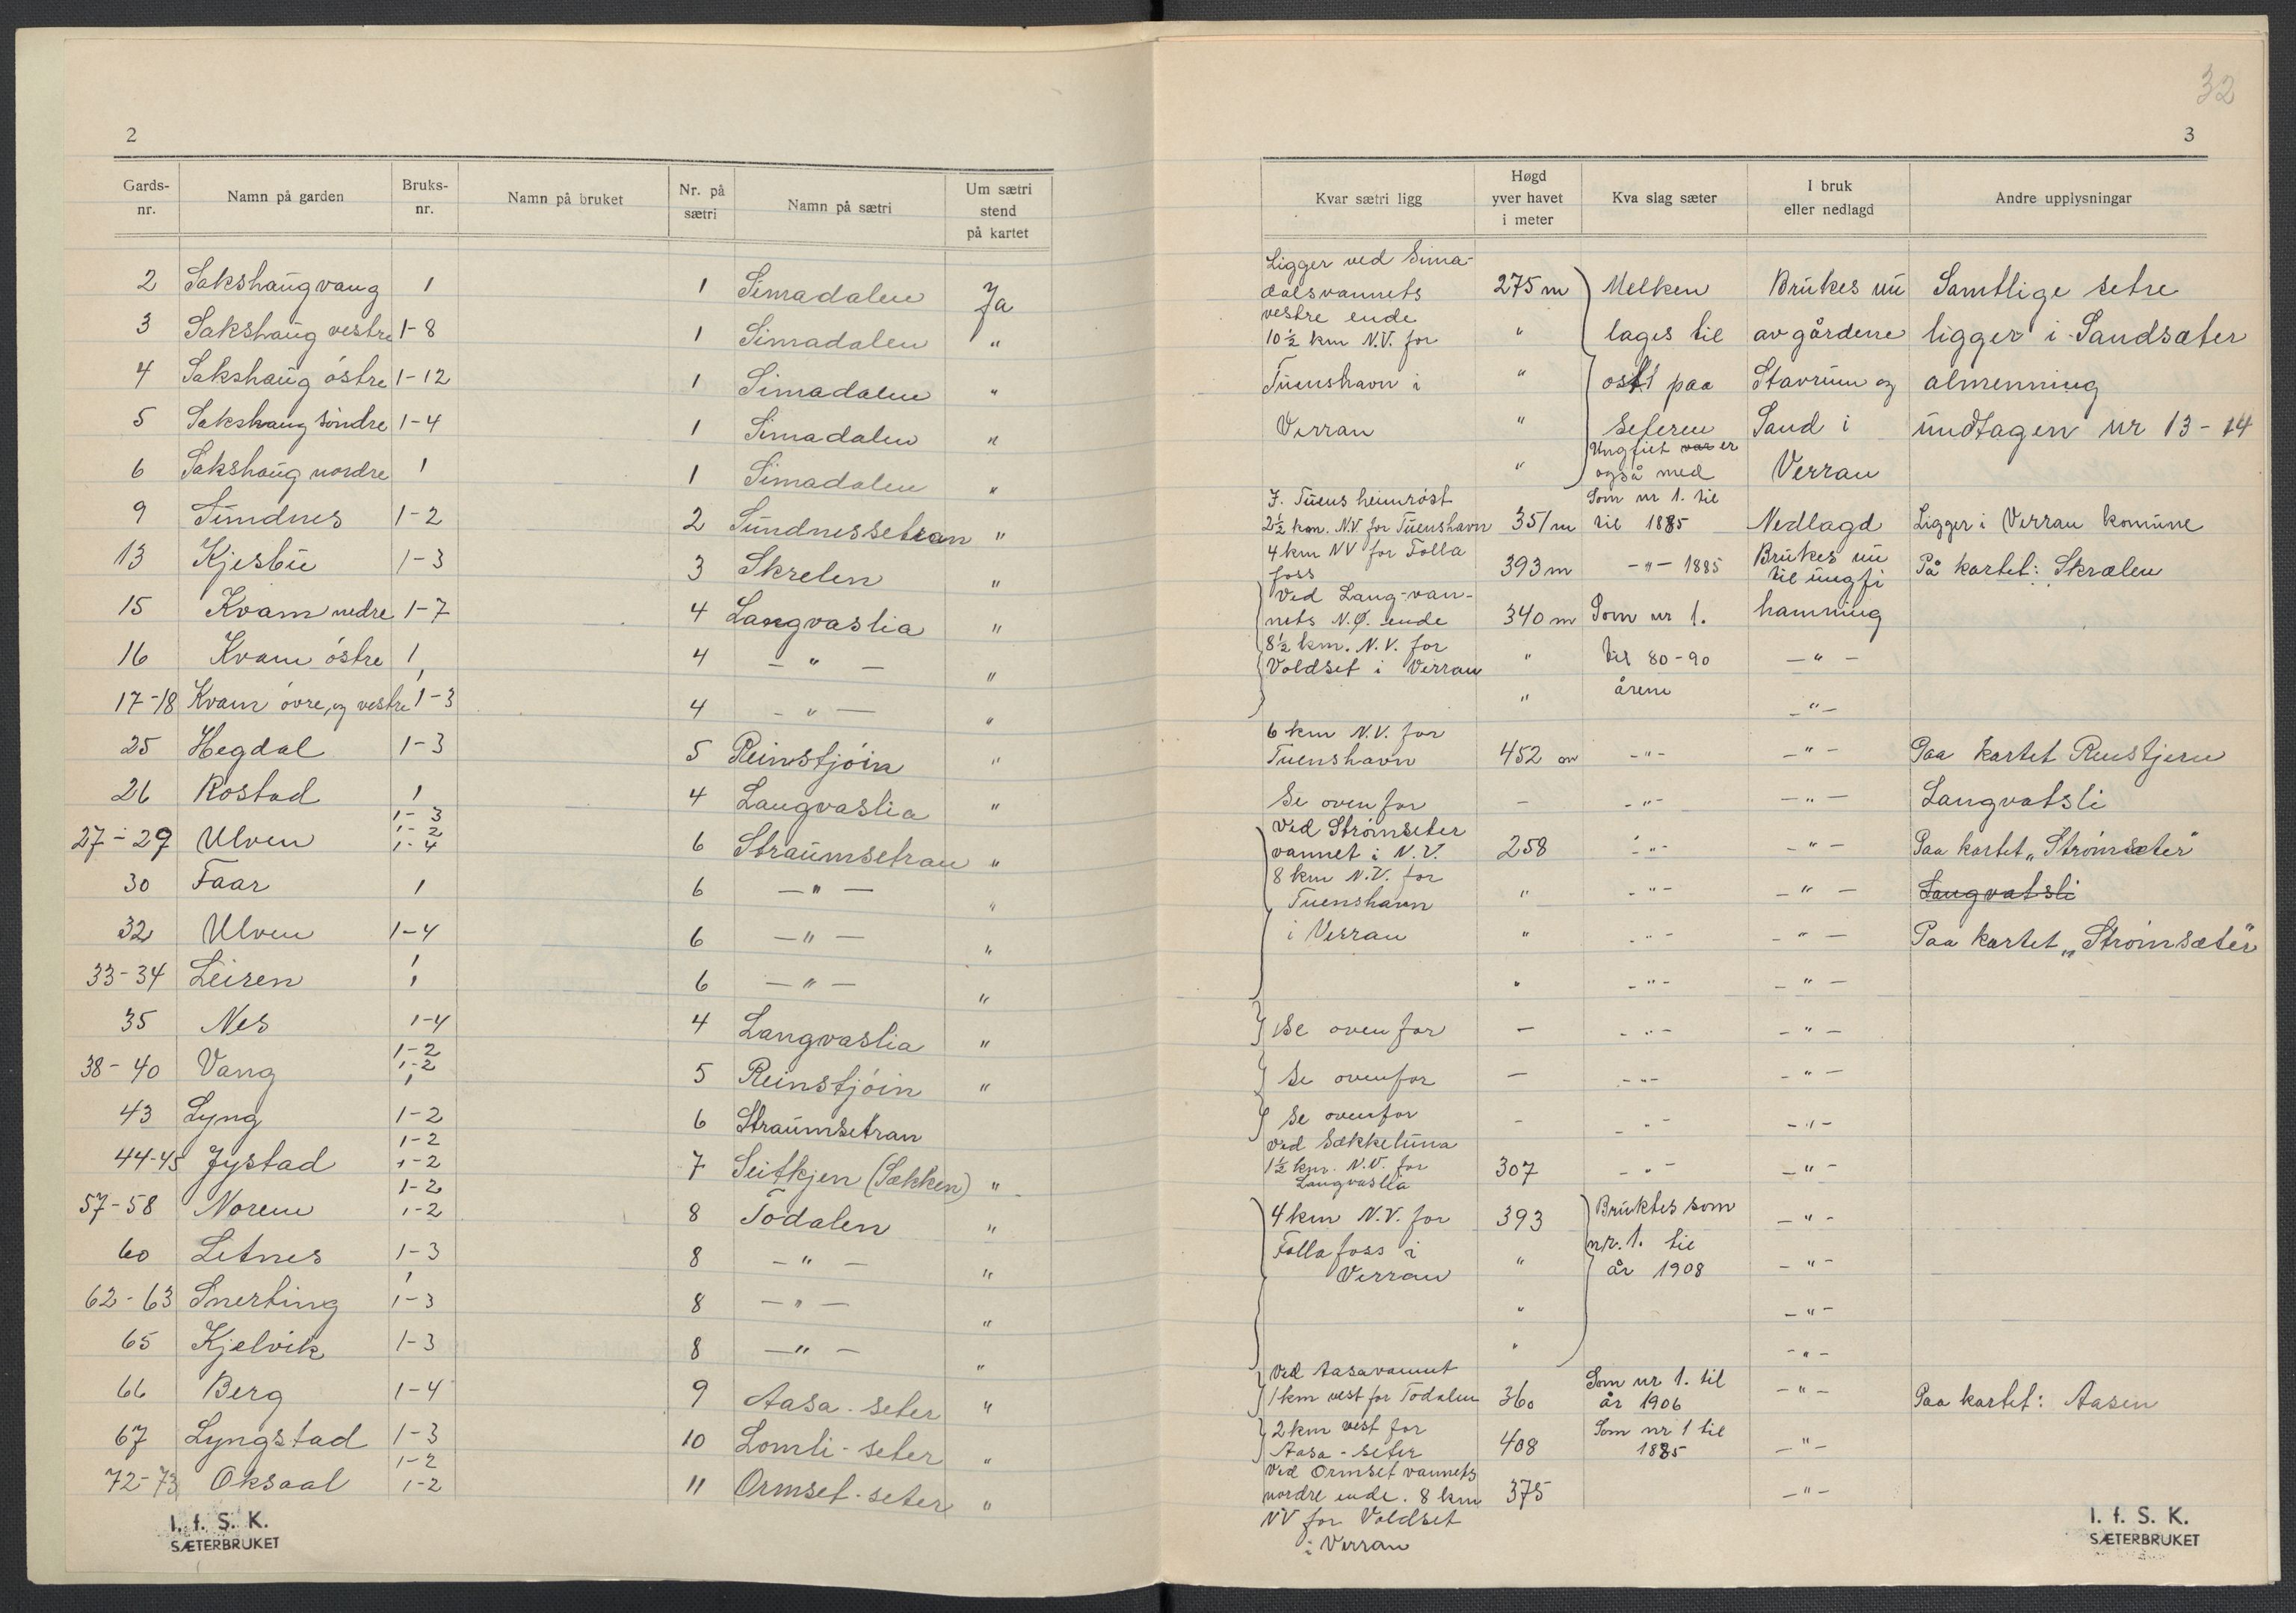 32
2
3
Gards-nr. Namn på garden Bruks-nr. Namn på bruket Nr. på sætri Namn på sætri Um sætri stend på kartet
Kvar sætri ligg Høgd yver havet i meter Kva slag sæter I bruk eller nedlagd Andre upplysningar
2 Sakshaugvang 1 1 Simadalen Ja
3 Sakshaug vestre 1-8 1 Simadalen "
4 Sakshaug östre 1-12 1 Simadalen "
5 Sakshaug söndre 1-4 1 Simadalen "
6 Sakshaug nordre 1 1 Simadalen "
9 Sundnes 1-2 2 Sundnessetran "
13 Kjesbu 1-3 3 Skrelen "
15 Kvam nedre 1-7 4 Langvaslia "
16 Kvam östre 1 4 - " - "
17-18 Kvam övre, og vestre 1 1-3 4 - " - "
25 Hegdal 1-3 5 Reinstjöin "
26 Rostad 1 4 Langvaslia "
27-29 Ulven 1-3 1-2 1-4 6 Straumsetran "
30 Faar 1 6 - " - "
32 Ulven 1-4 6 - " - "
33-34 Leiren 1 1 6 - " - "
35 Nes 1-4 4 Langvaslia "
38-40 Vang 1-2 1-2 1 5 Reinstjöin "
43 Lyng 1-2 6 Straumsetran
44-45 Jystad 1-2 1-2 7 Seitkjen (Sækken) "
57-58 Norem 1-2 1-2 8 Todalen "
60 Letnes 1-3 8 - " - "
62-63 Snerting 1 1-3 8 - " - "
65 Kjelvik 1-3 8 - " - "
66 Berg 1-4 9 Aasa-seter "
67 Lyngstad 1-3 10 Lomli-seter "
72-73 Oksaal 1-2 1-2 11 Ormset-seter "
I. f. S. K.
SÆTERBRUKET
Ligger ved Sima-
dalsvannets 275 m Melken Brukes nu Samtlige setre
vestre ende
10½ km N.V. for " lages til av gårdene ligger i Sandsæter
Tuenshavn i " ost paa Stavrum og almenning
Verran " Seteren Sand i undtagen nr 13-14
Ungfiet var er
" også med Verran
I. Tuens heimröst Som nr 1. til
2½ km. N.V for Tuenshavn 351 m til 1885 Nedlagd Ligger i Verran komune
4 km NV for Folla Brukes nu
foss 393 m -"- 1885 til ungfi På kartet: Skrælen
Ved Lang-van-
nets N.Ø. ende 340 m Som nr 1. hamning
8½ km. N.V. for
Voldset i Verran " til 80-90 - " -
" årene - " -
6 km N.V. for
Tuenshavn 452 m - " - - " - Paa kartet Renstjern
Se ovenfor - - " - - " - Langvatsli
Ved Strömseter
vannet i N.V. 258 - " - - " - Paa kartet "Strömsæter"
8 km N.V. for
Tuenshavn " - " - - " - Langvatsli
i Verran " - " - - " - Paa kartet "Strömsæter"
" - " - - " -
Se ovenfor - - " - - " -
Se ovenfor - - " - - " -
Se ovenfor - - " - - " -
ved Sækketuna
1½ km. N.V. for 307 - " - - " -
Langvaslia
4 km N.V. for 393 Bruktes som - " -
Folla foss i " nr. 1. til - " -
Verran år 1908
" - " -
" - " -
Ved Aasavannet
1 km vest for Todalen 360 Som nr 1. til år 1906 - " - Paa kartet: Aasen
2 km vest for
Aasa-seter 408 Som nr 1 til 1885 - " -
Ved Ormset vannets
nordre ende. 8 km 375 - " -
NV for Voldset
i Verran
I. f. S. K.
SÆTERBRUKET